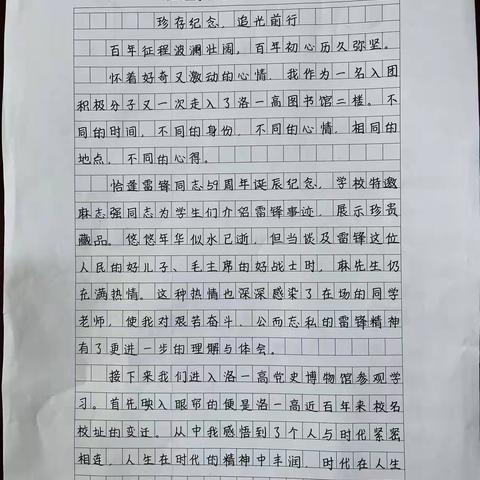 珍存纪念，追光前行
百年征程波澜壮阔，百年初心历久弥坚。
怀着好奇又激动的心情，我作为一名入团
积极分子又一次走入了洛一高图书馆二楼。不
同的时间，不同的身份，不同的心情，相同的
地点，不同的心得。
恰逢雷锋同志59周年诞辰纪念，学校特邀
麻志强同志为学生们介绍雷锋事迹，展示珍贵
藏品。悠悠年华似水已逝，但当谈及雷锋这位
人民的好儿子、毛主席的好战士时，麻先生仍
充满热情。这种热情也深深感染了在场的同学
老师，使我对艰苦奋斗、公而忘私的雷锋精神
有了更进一步的理解与体会。
接下来我们进入洛一高党史博物馆参观学
习。首先映入眼帘的便是洛一高近百年来校名
校址的变迁。从中我感悟到了个人与时代紧密
相连，人生在时代的精神中丰润，时代在人生